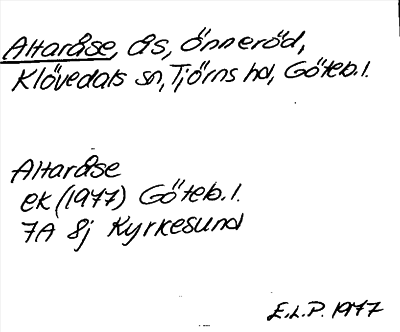 Altaråse, ås, Önneröd,
Klövedals sn, Tjörns hd, Göteb. l.
Altaråse
ek (1977) Göteb. l.
7A 8j Kyrkesund
E.L.P. 1977